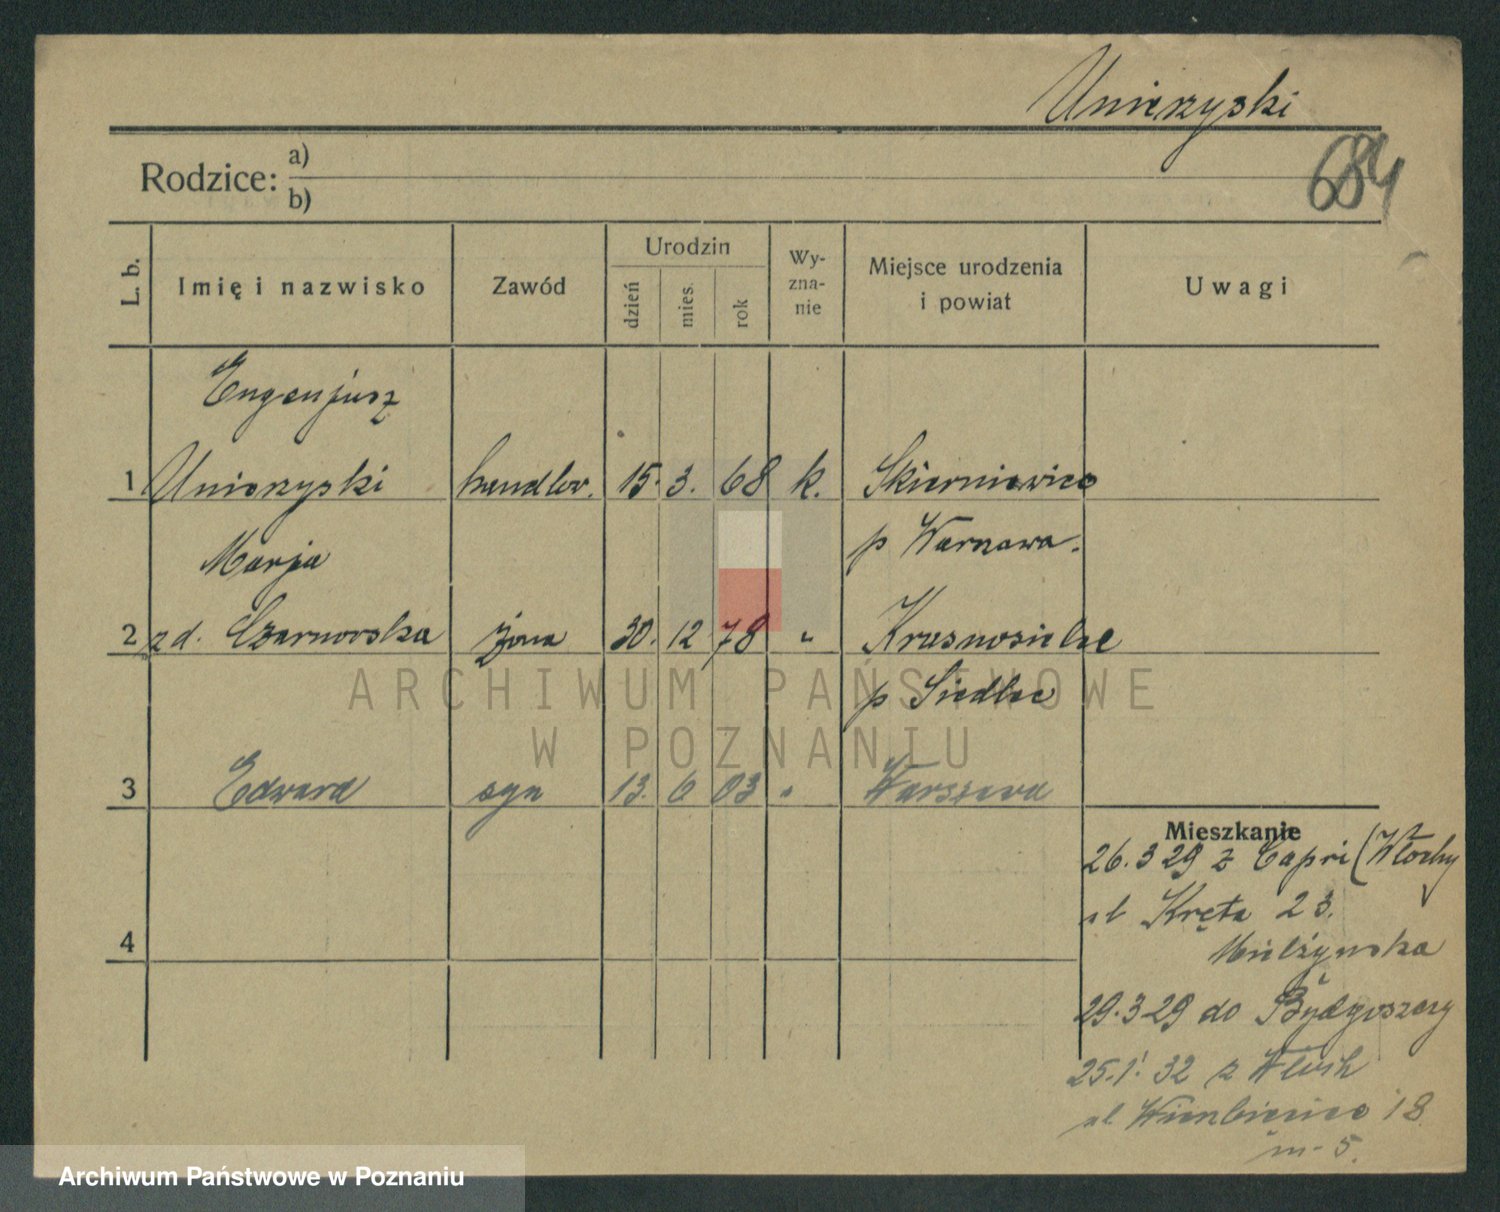 Unierzyski
684
Rodzice: a)
b)
L. b. Imię i nazwisko Zawód Urodzin dzień mies. rok Wy-zna-nie Miejsce urodzenia i powiat Uwagi
Eugenjusz
1 Unierzyski handlow. 15. 3. 68 k. Skierniewice
Marja p Warszawa.
2 zd. Czarnowska żona 30. 12 78 " Krasnosielce
p Siedlce
3 Edward syn 13. 6 03 " Warszawa
Mieszkanie
26.3 29 z Capri (Włochy
ul Kręta 23.
4
Mielżyńska
29.3-29 do Bydgoszczy
25.1. 32 z Włoch
ul Wierzbięcice 18
m-5.
ARCHIWUM PAŃSTWOWE
W POZNANIU
Archiwum Państwowe w Poznaniu